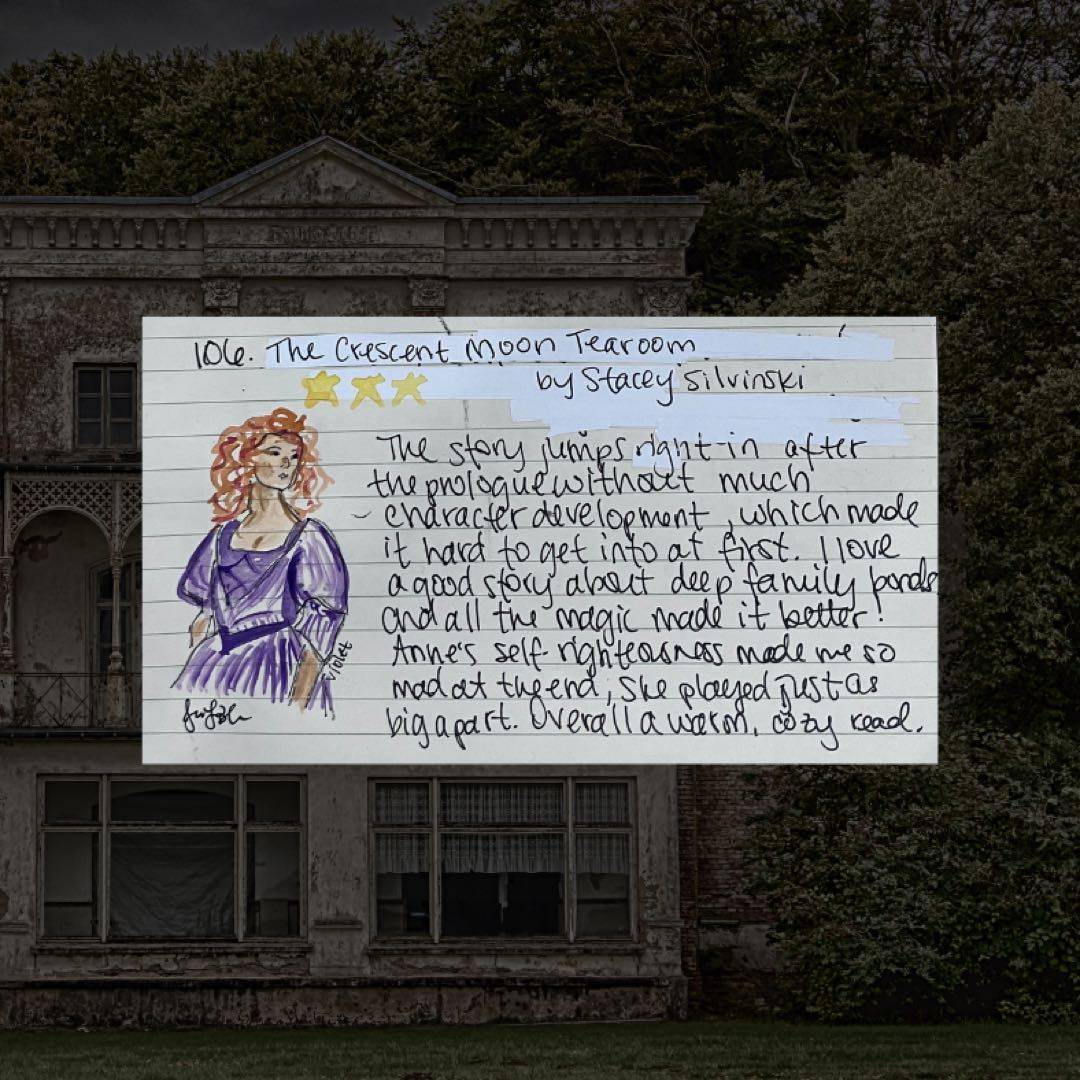 106. The Crescent Moon Tearoom
by Stacey Silvinski
The story jumps right in after
the prologue without much
character development, which made
it hard to get into at first. I love
a good story about deep family bonds
and all the magic made it better!
Anne's self righteousness made me so
mad at the end, she played just as
big a part. Overall a warm, cozy read.
Violet